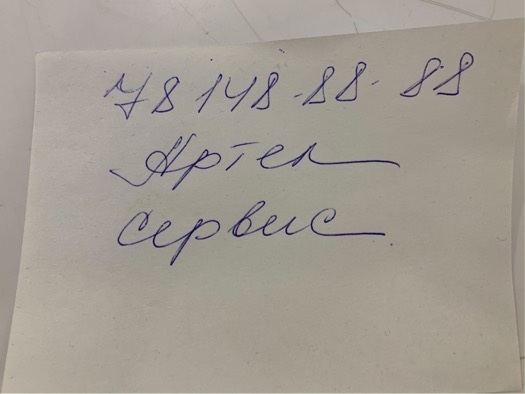 78 148-88-88
Артел
сервис